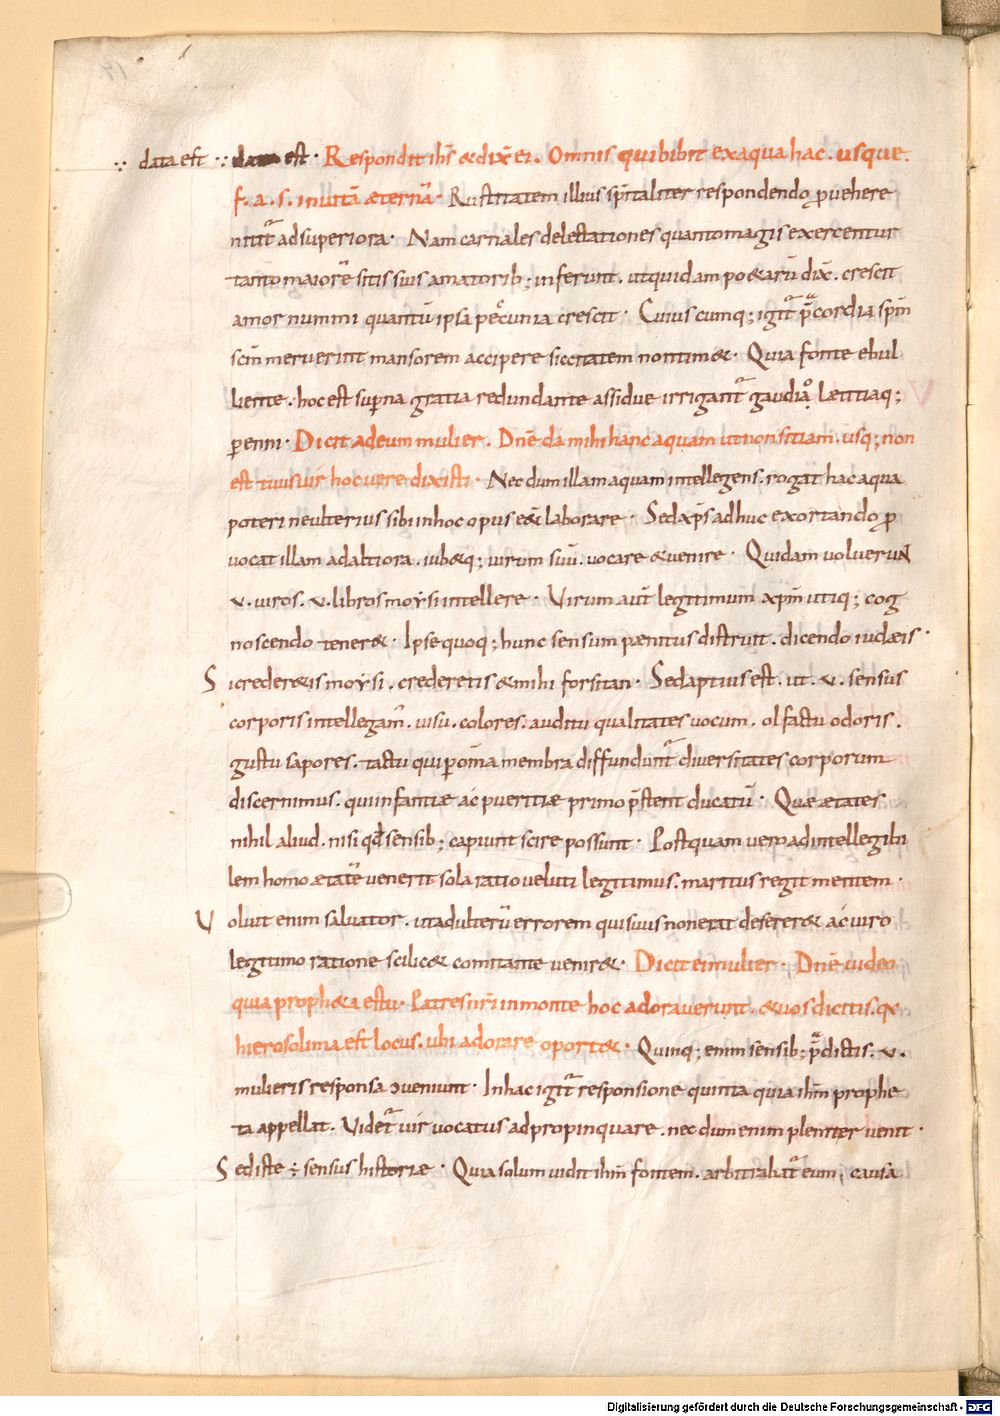 ∵ data est ∵ data est · Respondit ihs̄ & dix̄ ei . Omnis qui bibit ex aqua hac . usque .
f . a . s . in vitā æternā · Rusticitatem illius sp̄italiter respondendo ꝓvehere
nitit᷑ ad superiora · Nam carnales delectationes quanto magis exercentur
tanto maiorē sitis suis amatorib; inferunt . ut quidam po&arū dix̄ . crescit
amor nummi quantū ipsa pecunia crescit · Cuius cumq; igit᷑ p̄cordia sp̄m
sc̄m meruerint mansorem accipere siccitatem non tim& · Quia fonte ebul
liente . hoc est suꝑna gratia redundante assidue irrigant᷑ gaudio . lætitiaq;
ꝑenni · Dicit ad eum mulier . Dn̄e da mihi hanc aquam ut non sitiam . usq; non
est tuus vir hoc vere dixisti · Nec dum illam aquam intellegens . rogat hac aqua
poteri ne ulterius sibi in hoc opus ess& laborare · Sed xp̄s adhuc exortando ꝓ
vocat illam ad altiora . iub&q; virum suū . vocare & venire · Quidam voluerunt
.v. viros . v. libros moysi intellere · Virum aut̄ legitimum xp̄m utiq; cog
noscendo tener& · Ipse quoq; hunc sensum pænitus distruit . dicendo iudæis ·
Si creder&is moysi . crederetis & mihi forsitan · Sed aptius est . ut . v . sensus
corporis intellegam᷑ . visu . colores . auditu qualitates vocum . olfactu odoris .
gustu sapores . tactu qui ꝑ om̄a membra diffundunt᷑ diversitates corporum
discernimus . qui infantiæ ac pueritiæ primo p̄stent ducatū · Quæ ætates
nihil aliud . nisi qđ sensib; capiunt scire possunt · Postquam vero ad intellegibi
lem homo ætatē venerit sola ratio veluti legitimus . maritus regit mentem ·
Voluit enim salvator . ut adulterū errorem qui suus non erat deserer& ac viro
legitimo ratione scilic& comitante venir& · Dicit ei mulier · Dn̄e video
quia proph&a es tu · Patres nr̄i in monte hoc adoraverunt . & vos dicitis . qa
hierosolima est locus . ubi adorare oport& · Quinq; enim sensib; p̄dictis . v .
mulieris responsa ɔveniunt · In hac igit᷑ responsione quinta quia ihm̄ prophe
ta appellat . Videt᷑ vir vocatus adpropinquare . nec dum enim pleniter venit ·
Sed iste ÷ sensus historiæ · Quia solum vidit ihm̄ fontem . arbitrabat᷑ eum . causa
Digitalisierung gefördert durch die Deutsche Forschungsgemeinschaft · DFG